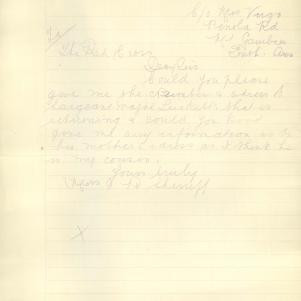 C/o Mrs Virgo
Penola Rd
Mt Gambier
South Aus
To
The Red Cross
Dear Sir
Could you please
give me the number & address of
Sargeant Major that is
returning & could you
give me any information as to
his mothers address as I think he
is my cousin.
Yours truly
Sheriff
X